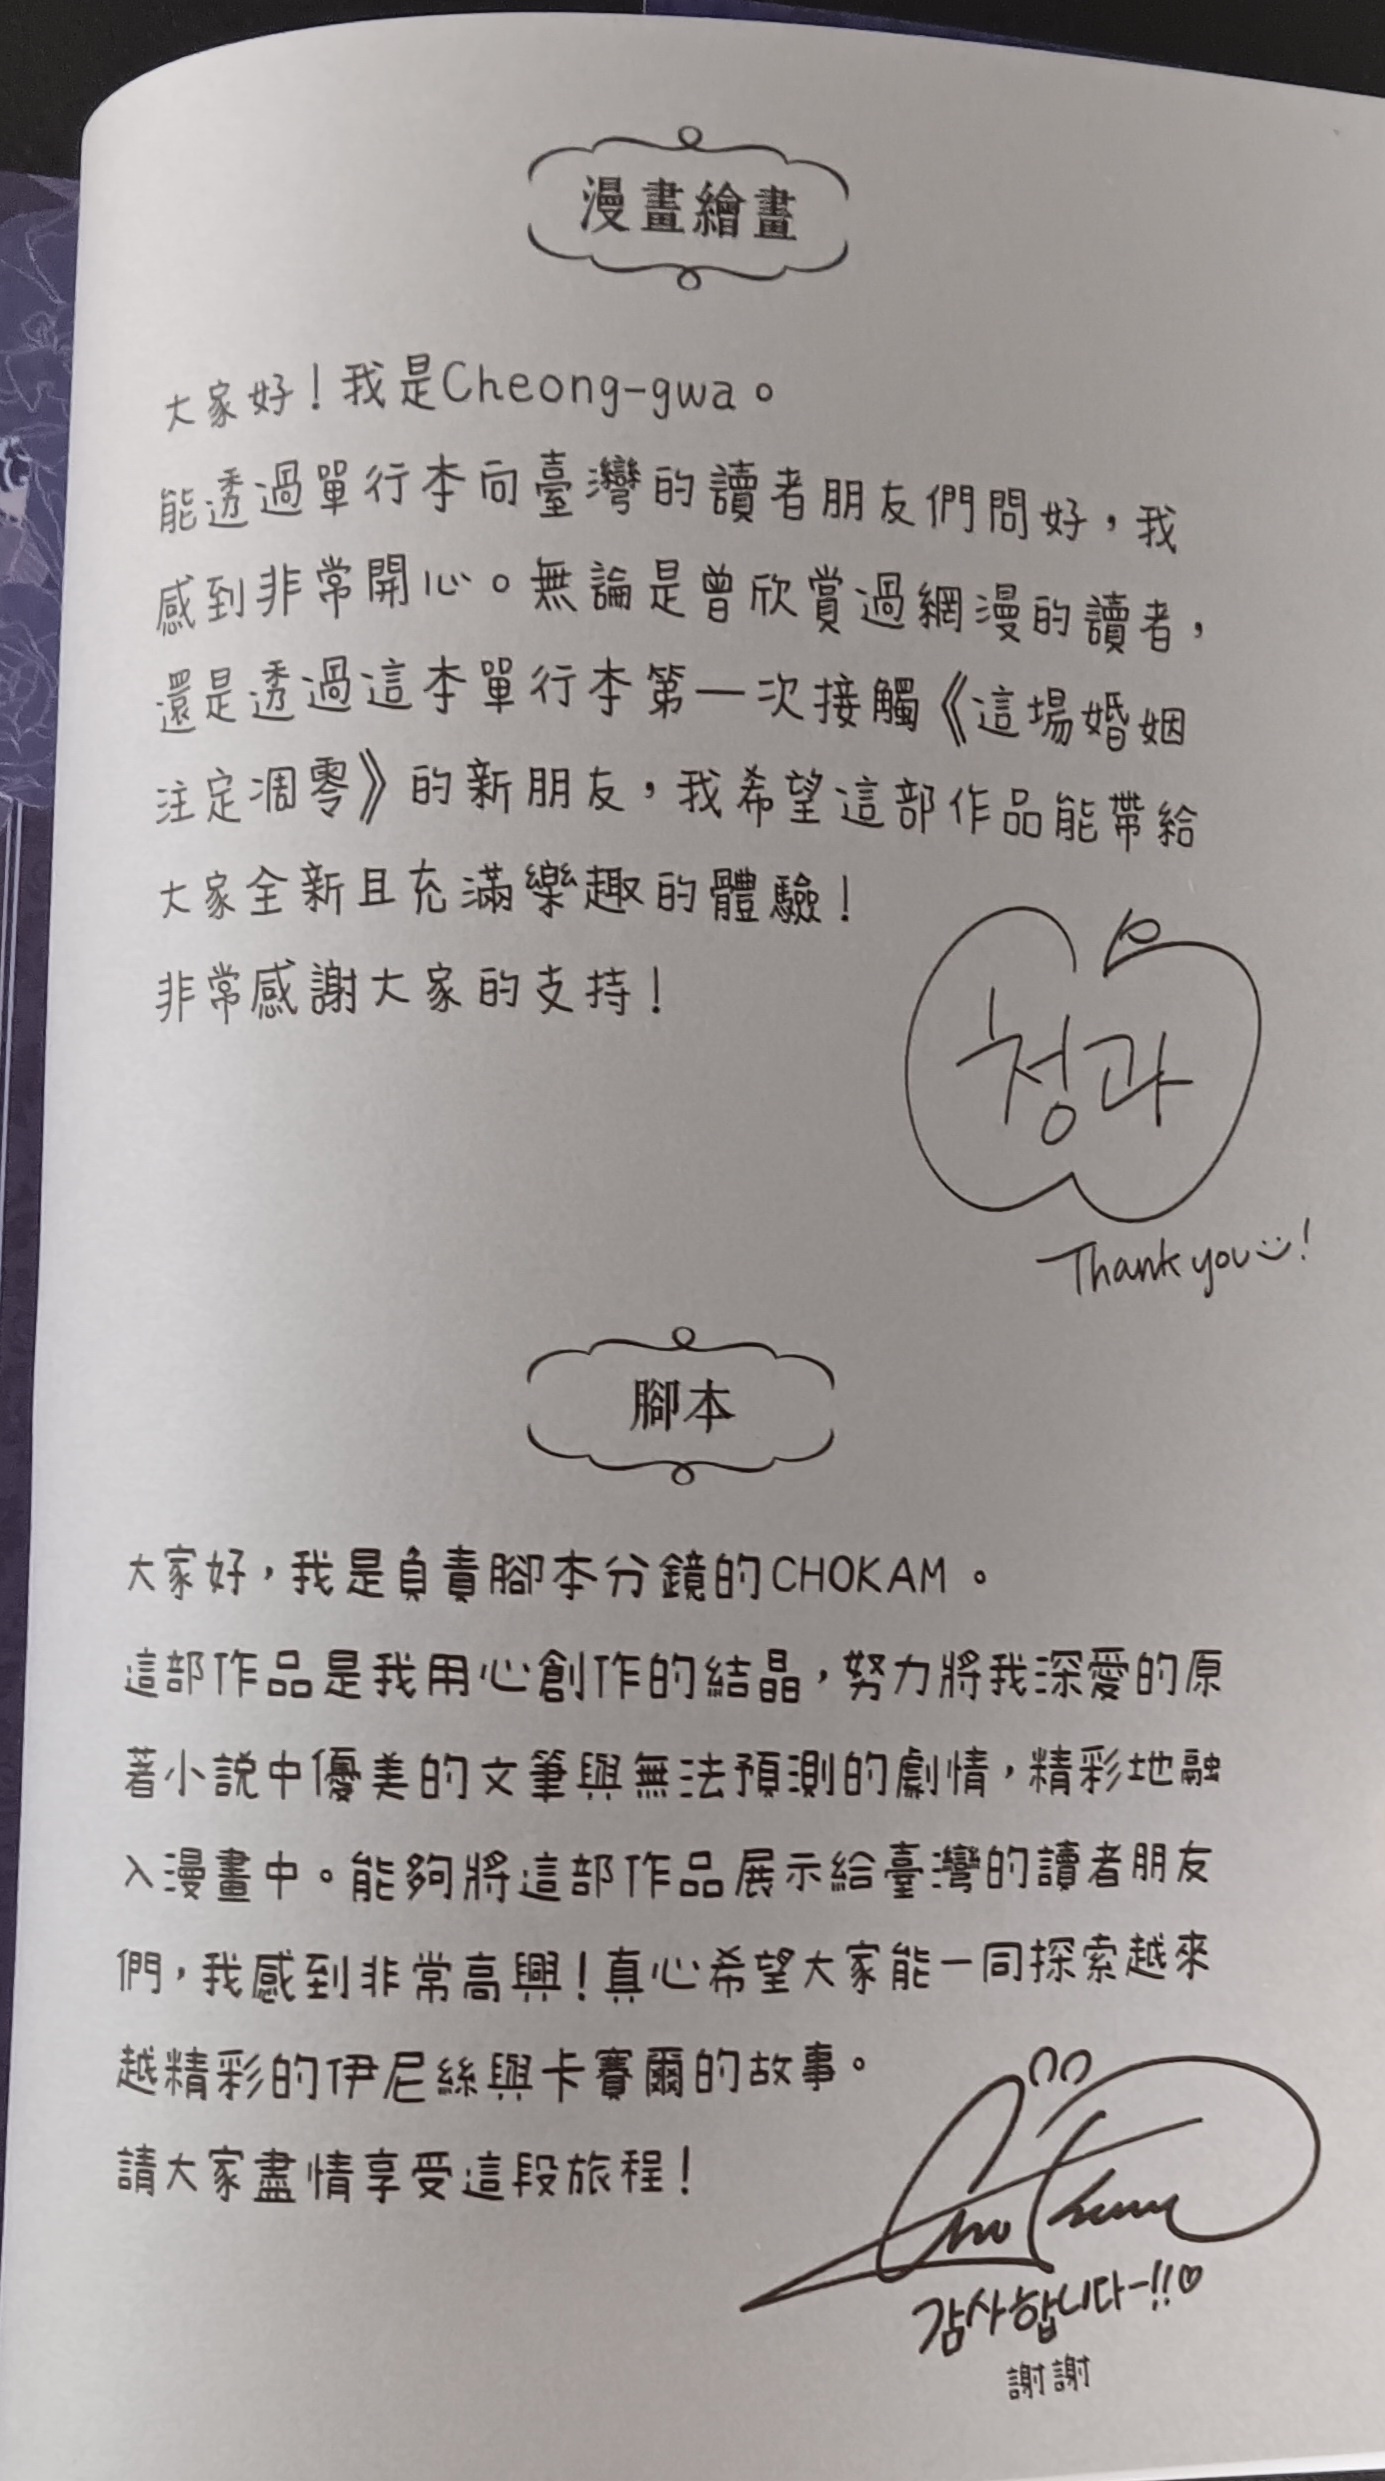 漫畫繪畫
大家好！我是Cheong-gwa。
能透過單行本向臺灣的讀者朋友們問好，我
感到非常開心。無論是曾欣賞過網漫的讀者，
還是透過這本單行本第一次接觸《這場婚姻
注定凋零》的新朋友，我希望這部作品能帶給
大家全新且充滿樂趣的體驗！
非常感謝大家的支持！
청과
Thank you!
腳本
大家好，我是負責腳本分鏡的CHOKAM。
這部作品是我用心創作的結晶，努力將我深愛的原
著小說中優美的文筆與無法預測的劇情，精彩地融
入漫畫中。能夠將這部作品展示給臺灣的讀者朋友
們，我感到非常高興！真心希望大家能一同探索越來
越精彩的伊尼絲與卡賽爾的故事。
請大家盡情享受這段旅程！
감사합니다~!!♡
謝謝